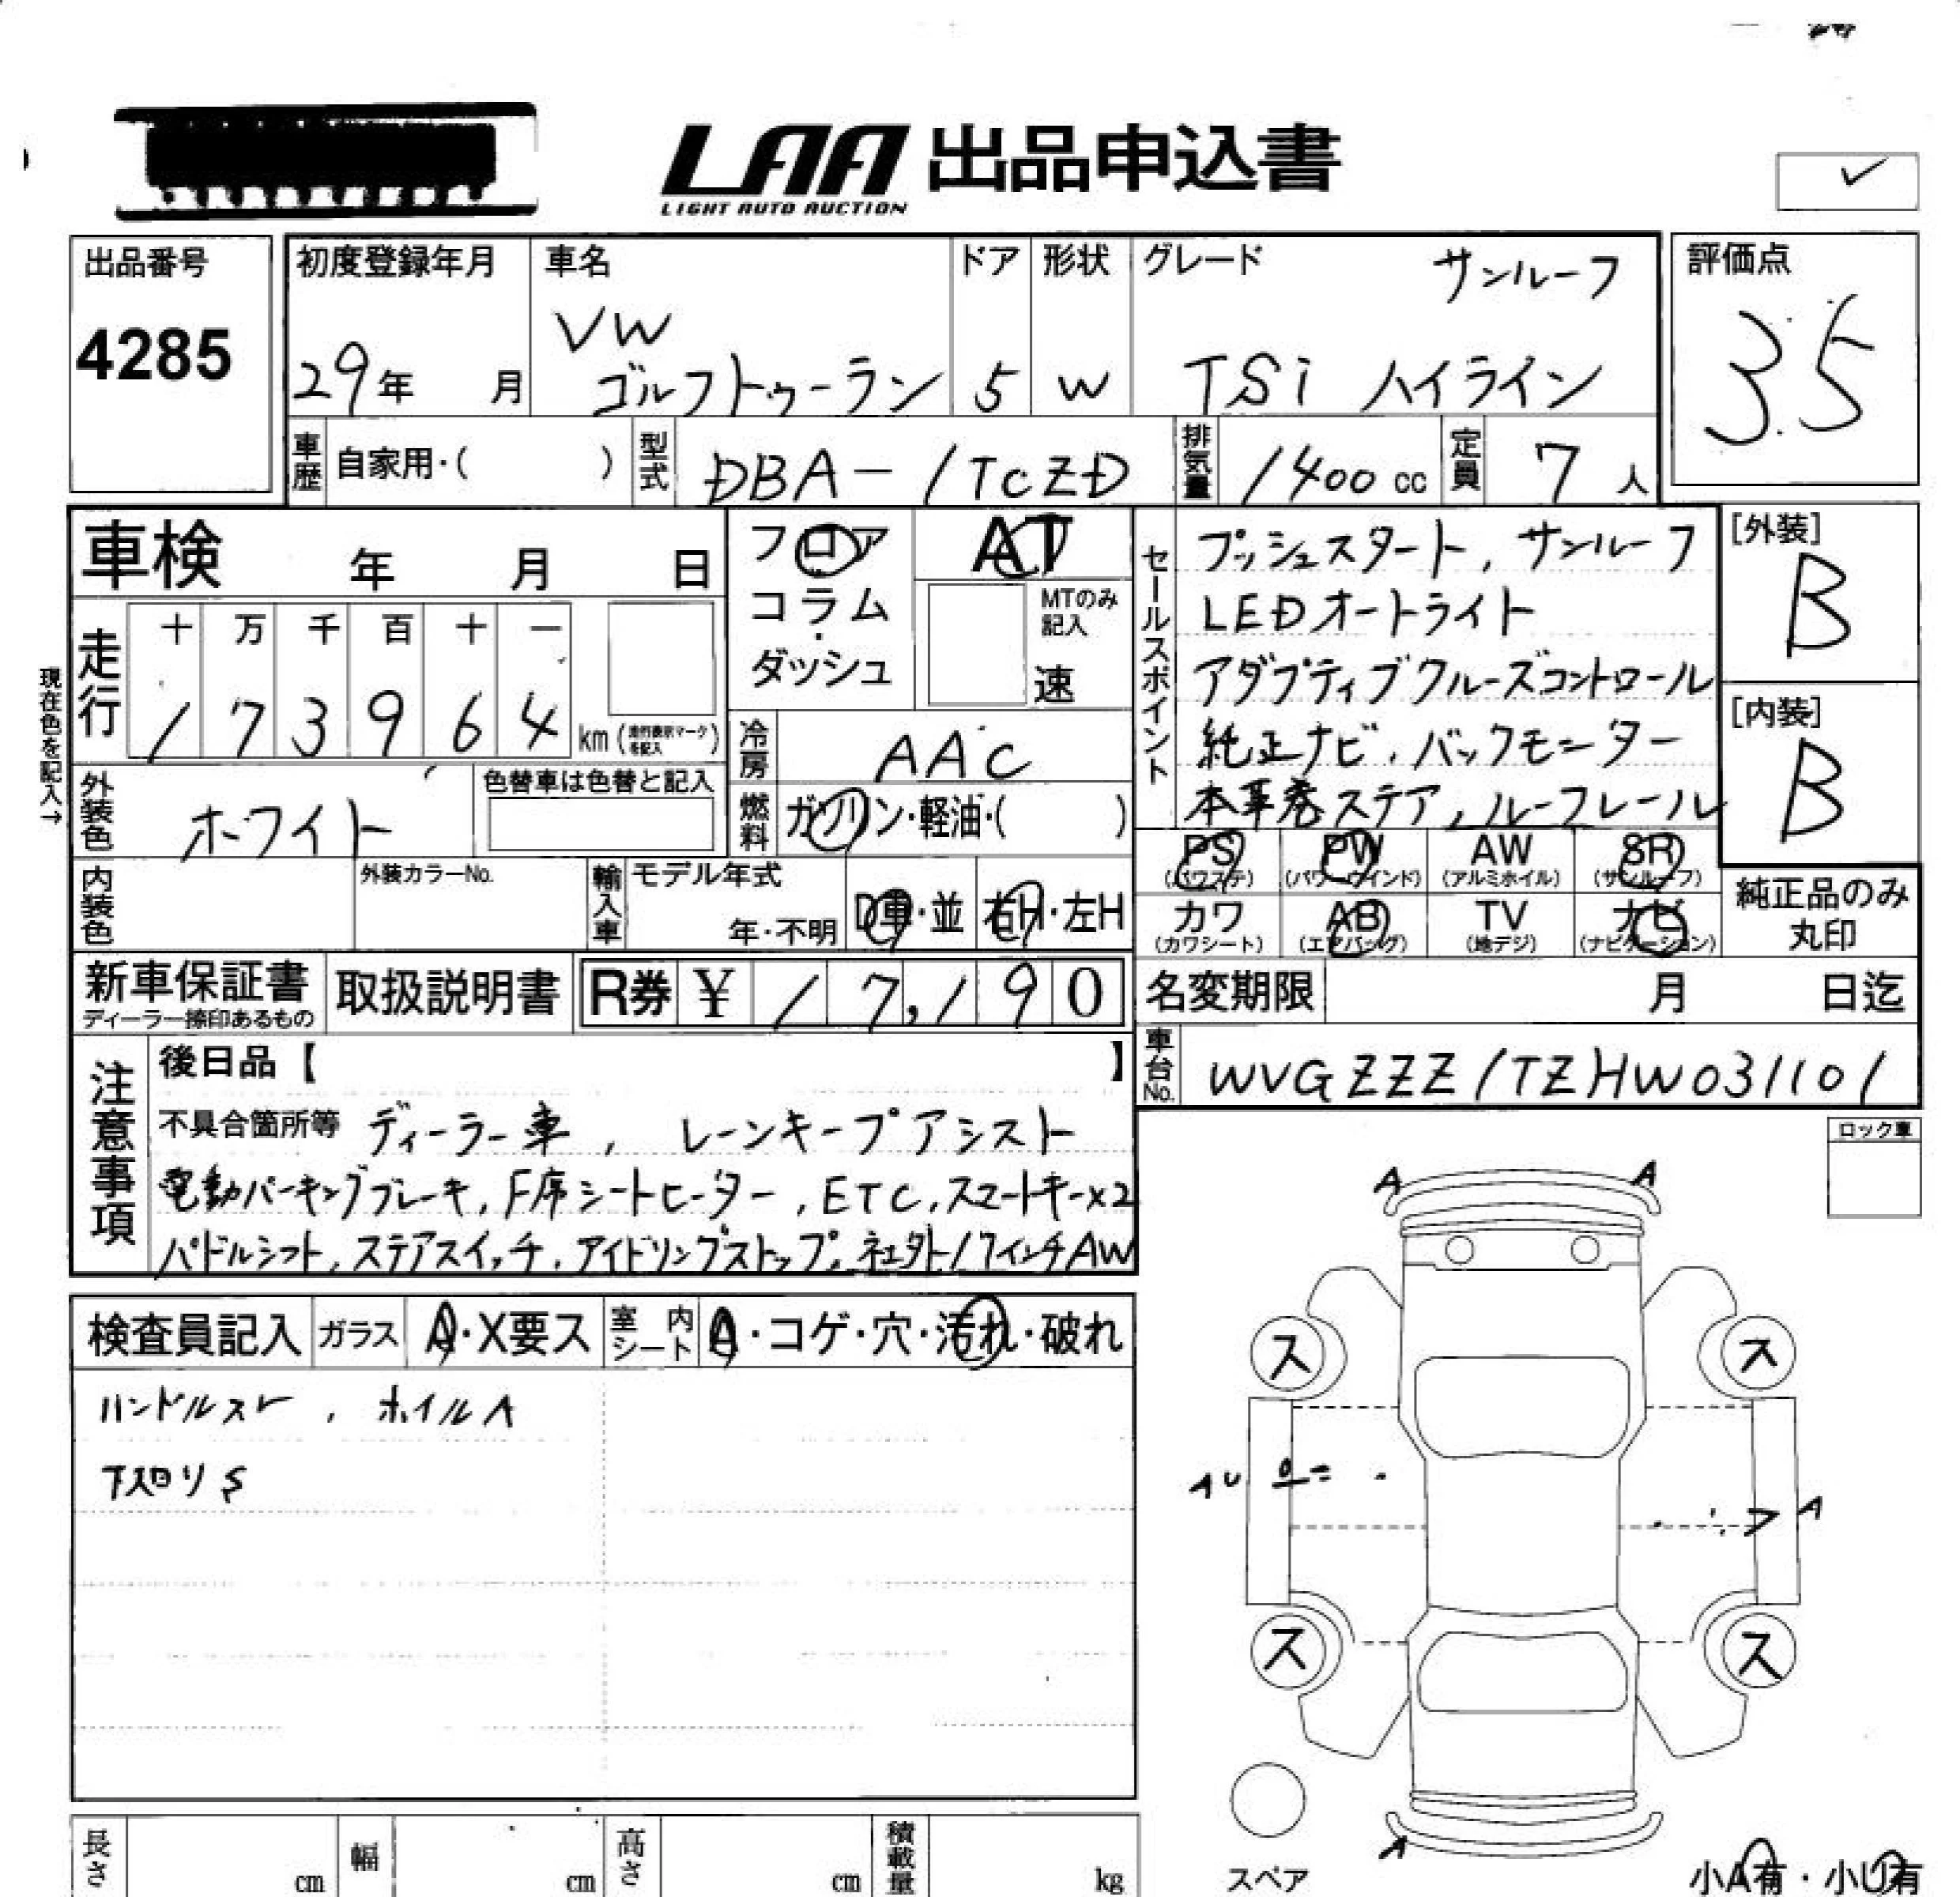 LAA 出品申込書
LIGHT AUTO AUCTION
出品番号
4285
初度登録年月
29年 月
車名
VW
ゴルフトゥーラン
ドア
5
形状
W
グレード
サンルーフ
TSi ハイライン
評価点
3.5
車歴 自家用・( )
型式 DBA-1TCZD
排気量 1400 cc
定員 7人
車検 年 月 日
フロア
コラム
・
ダッシュ
AT
MTのみ
記入
速
セールスポイント
プッシュスタート, サンルーフ
LEDオートライト
アダプティブクルーズコントロール
純正ナビ, バックモニター
本革巻ステア, ルーフレール
[外装]
B
[内装]
B
現在色を記入→
走行
十 万 千 百 十 一
1 7 3 9 6 4 km (走行表示マークを記入)
冷房 AAC
燃料 ガソリン・軽油・( )
外装色 ホワイト
色替車は色替と記入
内装色
外装カラーNo.
輸入車
モデル年式
年・不明
D車・並 右H・左H
PS (パワステ)
PW (パワーウインド)
AW (アルミホイル)
SR (サンルーフ)
カワ (カワシート)
AB (エアバッグ)
TV (地デジ)
ナビ (ナビゲーション)
純正品のみ
丸印
新車保証書
ディーラー捺印あるもの
取扱説明書
R券 ¥ 17,190
名変期限 月 日迄
車台No. WVGZZZ1TZHW031101
注意事項
後日品【 】
不具合箇所等 ディーラー車, レーンキープアシスト
電動パーキングブレーキ, F席シートヒーター, ETC, スマートキー×2
パドルシフト, ステアスイッチ, アイドリングストップ, 社外17インチAW
ロック車
検査員記入
ガラス A・X要ス
室内シート A・コゲ・穴・汚れ・破れ
ハンドルスレ, ホイルA
下スリS
A A
ス ス
AU
A
ス ス
A
スペア
小A有・小U有
長さ cm
幅 cm
高さ cm
積載量 kg